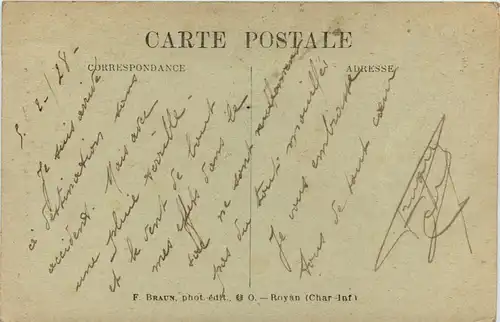 CARTE POSTALE
CORRESPONDANCE
ADRESSE
5-2-/28-
Je suis arrivé
à destination sans
accident. Mais avec
une pluie terrible -
et le vent de bout
mes effets dans le
sac ne sont seulement
pas du tout mouillés
Je vous embrasse
tous de tout cœur
F. BRAUN, phot.-édit., O. — Royan (Char-Inf)